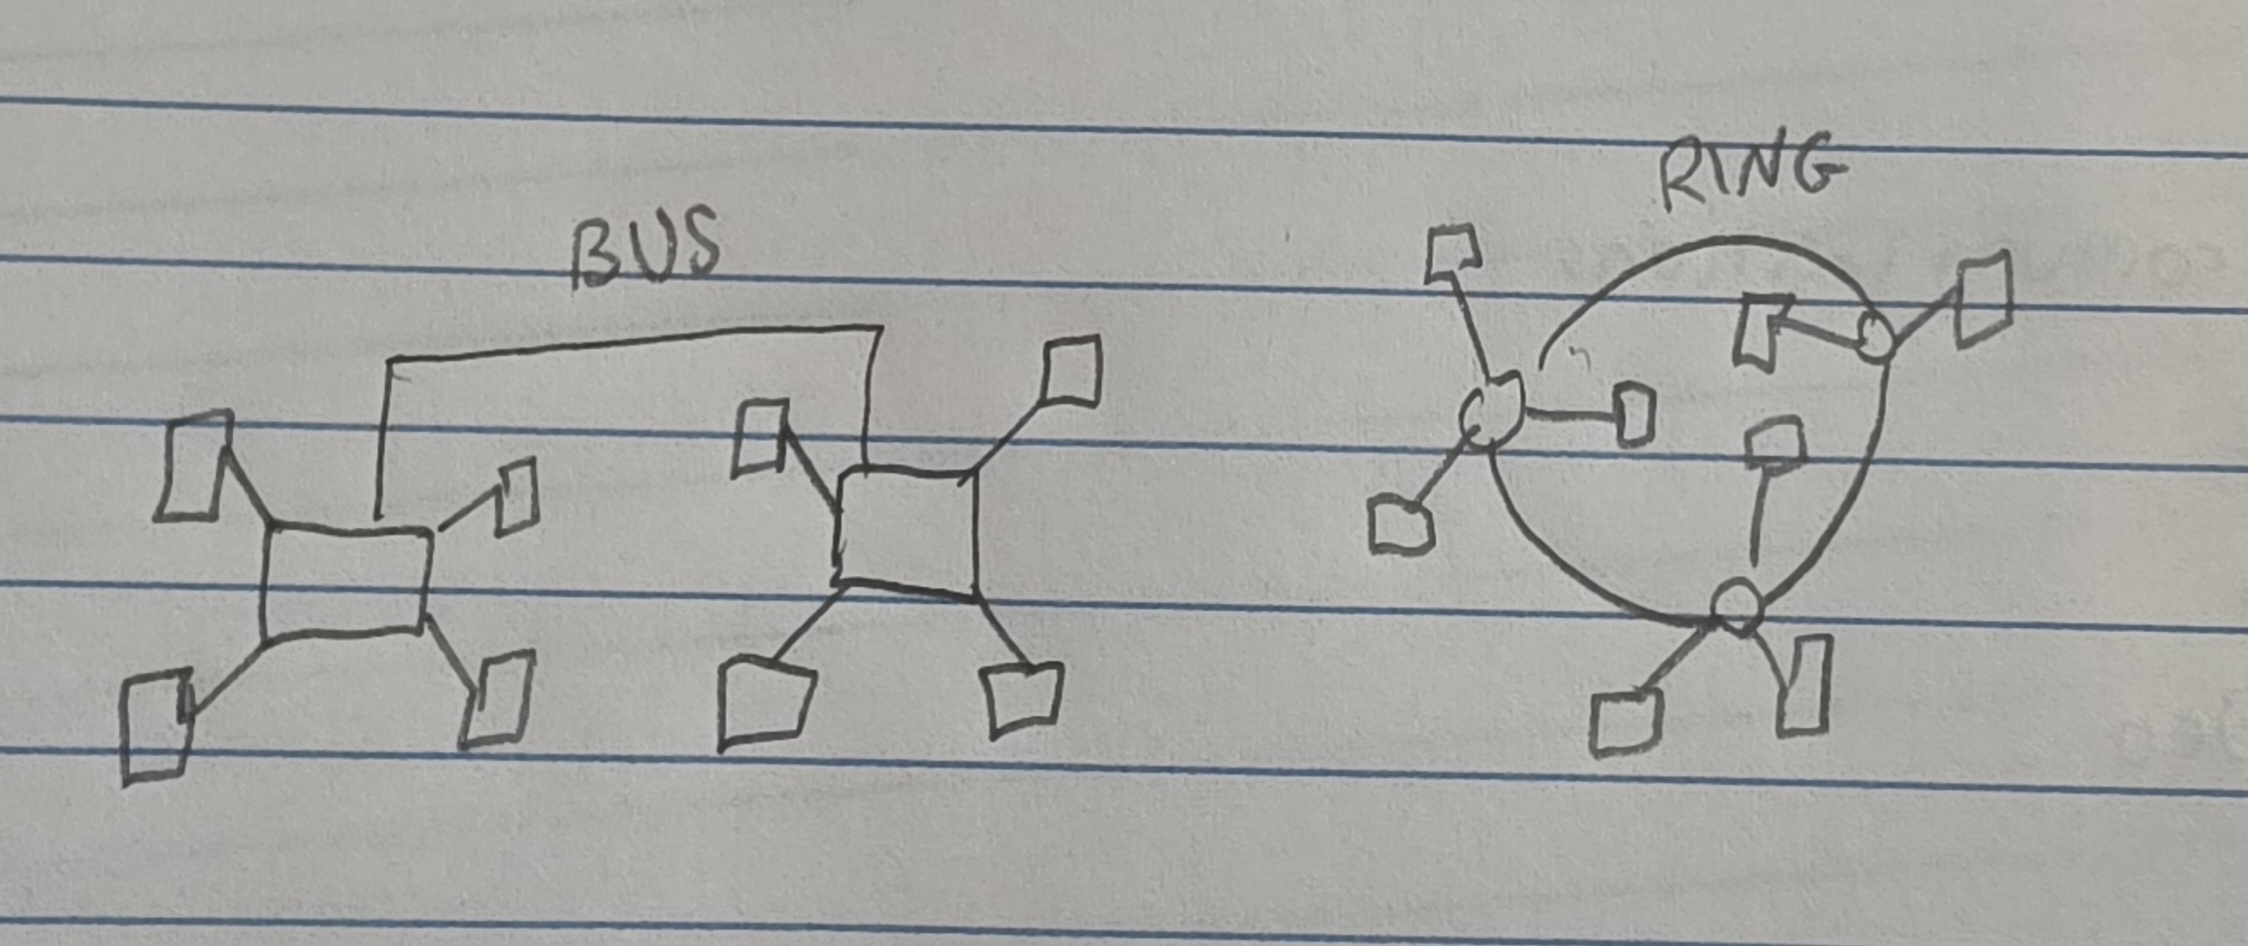 BUS
RING